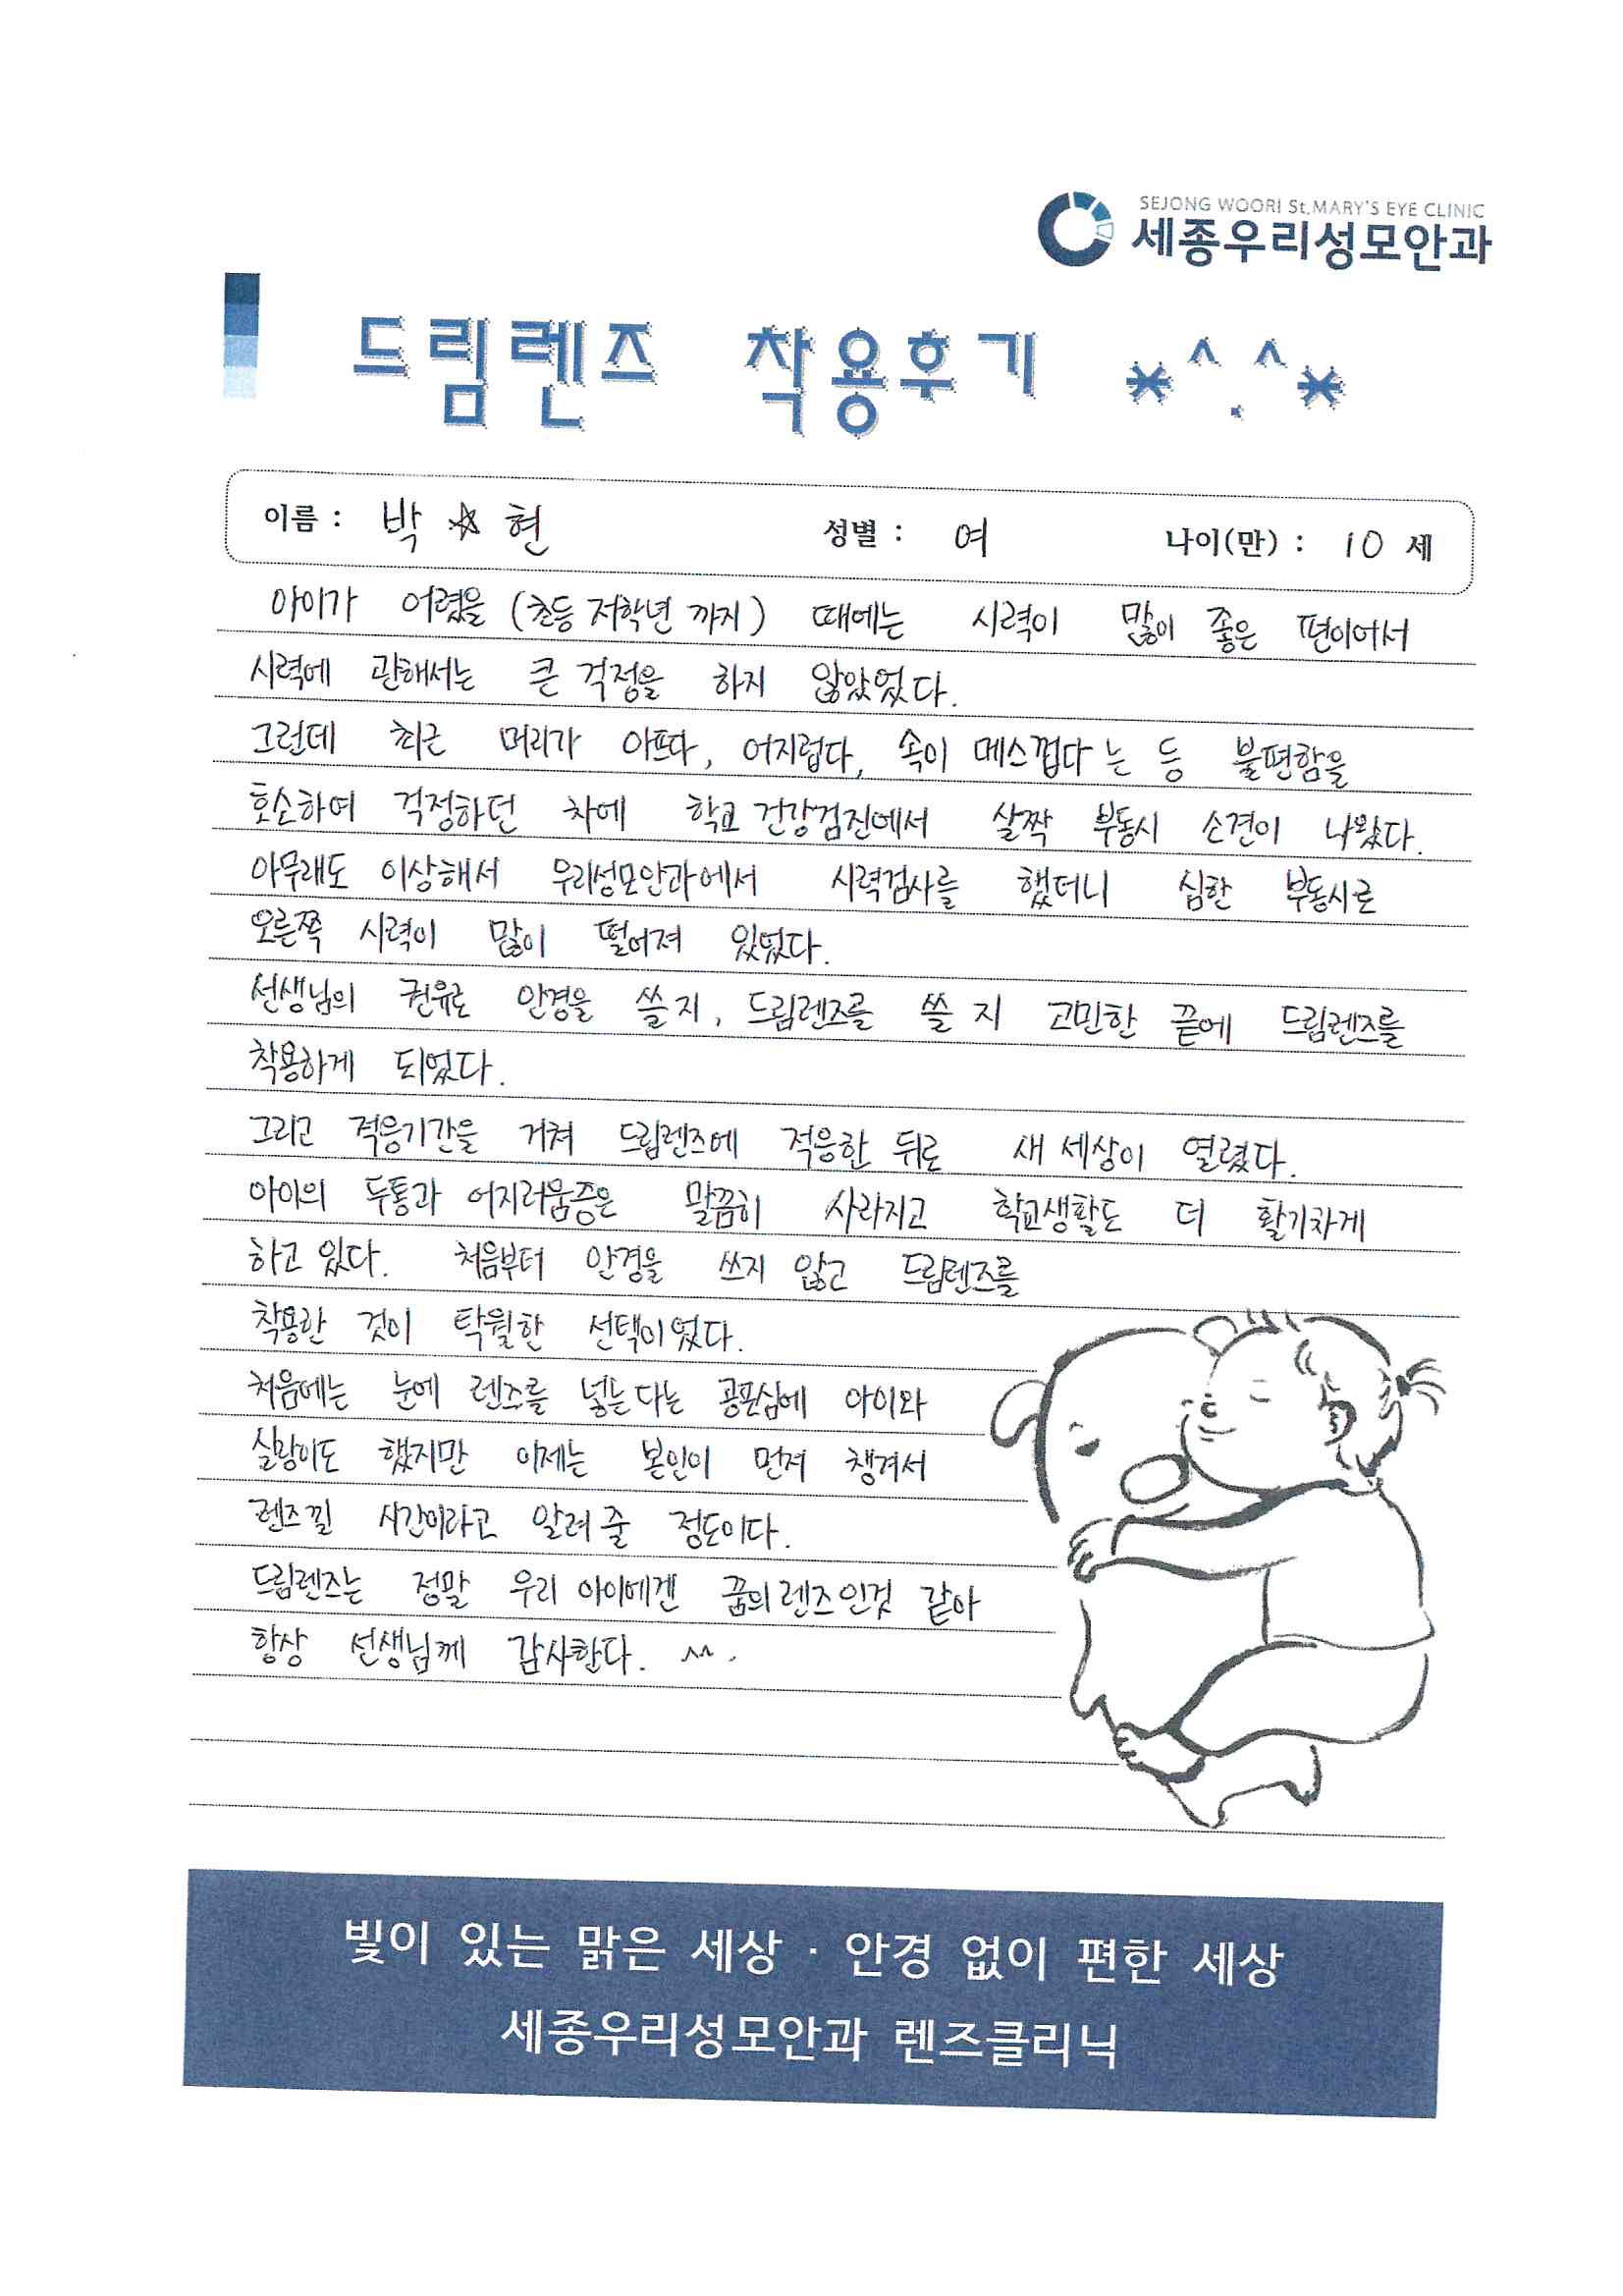 SEJONG WOORI St.MARY'S EYE CLINIC
세종우리성모안과
드림렌즈 착용후기 *^.^*
이름 : 박☆현 성별 : 여 나이(만) : 10 세
아이가 어렸을 (초등 저학년 까지) 때에는 시력이 많이 좋은 편이어서
시력에 관해서는 큰 걱정을 하지 않았었다.
그런데 최근 머리가 아프다, 어지럽다, 속이 메스껍다 는 등 불편함을
호소하여 걱정하던 차에 학교 건강검진에서 살짝 부동시 소견이 나왔다.
아무래도 이상해서 우리성모안과에서 시력검사를 했더니 심한 부동시로
오른쪽 시력이 많이 떨어져 있었다.
선생님의 권유로 안경을 쓸지, 드림렌즈를 쓸 지 고민한 끝에 드림렌즈를
착용하게 되었다.
그리고 적응기간을 거쳐 드림렌즈에 적응한 뒤로 새 세상이 열렸다.
아이의 두통과 어지러움증은 말끔히 사라지고 학교생활도 더 활기차게
하고 있다. 처음부터 안경을 쓰지 않고 드림렌즈를
착용한 것이 탁월한 선택이었다.
처음에는 눈에 렌즈를 넣는다는 공포심에 아이와
실랑이도 했지만 이제는 본인이 먼저 챙겨서
렌즈낄 시간이라고 알려 줄 정도이다.
드림렌즈는 정말 우리 아이에겐 꿈의 렌즈인것 같아
항상 선생님께 감사한다. ^^.
빛이 있는 맑은 세상 · 안경 없이 편한 세상
세종우리성모안과 렌즈클리닉